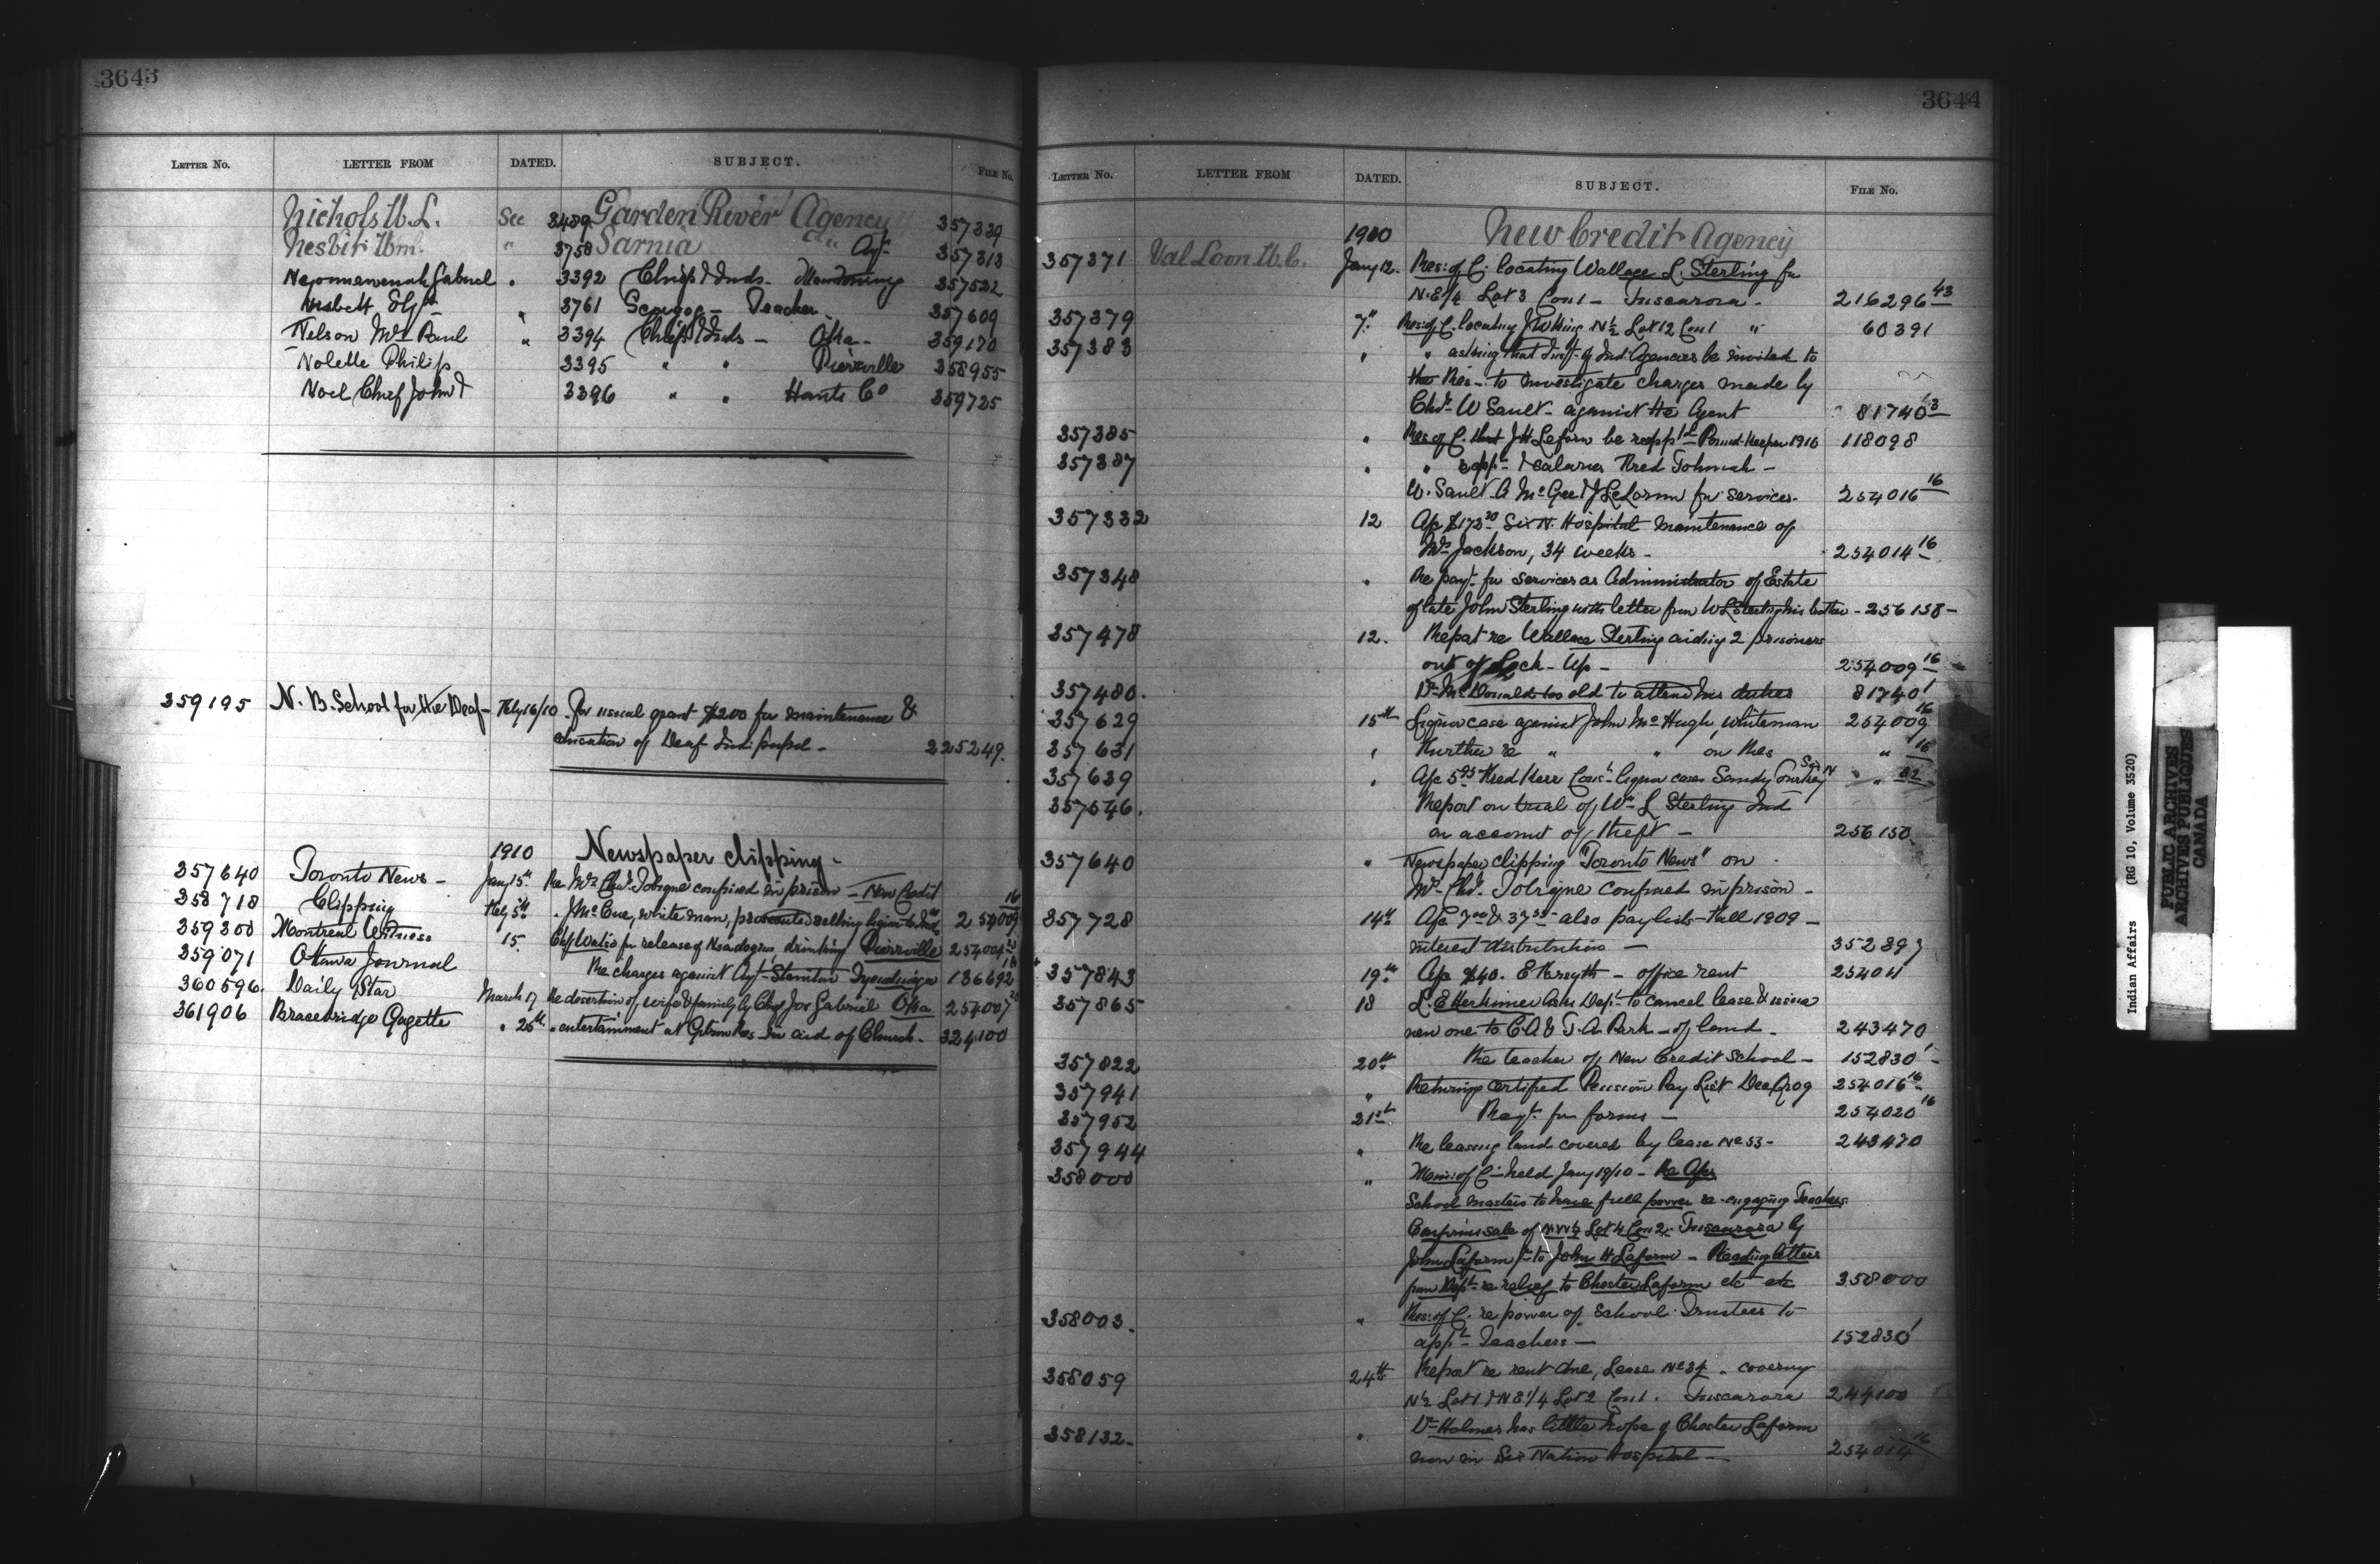 3643
LETTER NO. LETTER FROM DATED. SUBJECT. FILE No.
Nichols W. L. See 3489 Garden River Agency 357339
Nesbit Wm. " 3758 Sarnia " Agy 357313
Gabriel " 3392 Chiefs & Inds - 357522
Nisbett " 3761 Scugog - Teacher - 357609
Nelson Mrs Paul " 3394 Chiefs & Inds - Oka - 359170
Nolette Philip 3395 " " Pierreville 358955
Noel Chief John T 3396 " " Hants Co 359725
359195 N. B. School for the Deaf - Feby 16/10 For usual grant $200 for maintenance &
education of Deaf Ind. pupil - 225249.
1910 Newspaper clipping -
357640 Toronto News - Jany 15th Re Mrs Chas. Tobique confined in prison - New Credit 254009 16
358718 Clipping Feby 5th J McCue, white man, selling liquor to Inds
359300 Montreal Witness 15. for release of drinking Pierreville 254004
359071 Ottawa Journal Re charges against Agt. Stainton Tyendinaga 136692
360596 Daily Star March 17 Re desertion of wife & family by Chas Jos Gabriel Oka 254007
361906 Bracebridge Gazette " 26th " entertainment at Gibson Res. in aid of Church - 324100
3644
LETTER NO. LETTER FROM DATED. SUBJECT. FILE NO.
1910 New Credit Agency
357371 Van Loon W. C. Jany 12. Res: of C. locating Wallace L. Sterling for
N.E¼ Lot 3 Con 1 - Tuscarora - 216296 43
357379 7th Res: of C. locating J W King N½ Lot 12 Con 1 " 60391
357383 " " asking that Inspt. of Ind: Agencies be invited to
the Res - to investigate charges made by
Chas. W Sault - against the Agent 81740 3
357385 " Res of C. that J H Laform be reappt'd Pound-Keeper 1910 118098
357387 " " appt. & salaries Fred Tobicoh -
W. Sault - A McGee & J LaLorm for services - 254016 16
357332 12 A/c $173.30 Six N. Hospital maintenance of
Mrs Jackson, 34 weeks - 254014 16
357348 " Re payt. for services as Administrator of Estate
of late John Sterling with letter from W L Sterling his brother - 256158 -
357478 12. Report re Wallace Sterling aiding 2 prisoners
out of Lock-Up - 254009 16
357480. Dr McDonald too old to attend his duties 81740 1
357629 15th Liquor case against John McHugh, whiteman 254009 16
357631 " Further re " " on Res " 16
357639 " A/c 5.95 Fred Kerr Cons. liquor cases Sandy Turkey Six N " " 32
357546. Report on trial of Wm L Sterling Ind
on account of theft - 256150
357640 " Newspaper clipping "Toronto News" on
Mrs Chas. Tobique confined in prison -
357728 14th A/c & also pay lists - Fall 1909 -
interest distribution - 352897
357843 19th A/c $40. E Forsyth - office rent 254011
357865 18 L. E Herkimer asks Dept. to cancel lease & issue
new one to C.A & T. A. Park - of land - 243470
357822 20th Re teacher of New Credit School - 152830 1
357941 " Returning certified Pension Pay List Dec Qr 09 254016 16
357952 21st Reqt. for forms - 254020 16
357944 " Re leasing land covered by lease No 53 - 243470
358000 " Min: of C - held Jany 19/10 - Re A/cs
School masters to have full power re-engaging Teachers
Confirms sale of N.W½ Lot 4 Con 2. Tuscarora by
John Laform Sr to John H Laform - Reading letters
from Dept. re relief to Chester Laform etc etc 358000
358003. " Res: of C. re power of School Trustees to
appt. Teachers - 152830 1
358059 24th Report re rent due, Lease No 34 - covering
N½ Lot 1 & N E¼ Lot 2 Con 1. Tuscarora 244100
358132 - " Dr Holmes has little hope of Chester Laform
now in Six Nation Hospital - 254014 16
Indian Affairs (RG 10, Volume 3520)
PUBLIC ARCHIVES
ARCHIVES PUBLIQUES
CANADA